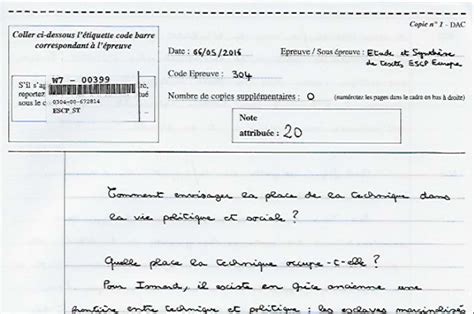 Copie n° 1 - DAC
Coller ci-dessous l'étiquette code barre
correspondant à l'épreuve
Date : 06/05/2016
Epreuve / Sous épreuve : Etude et Synthèse
de textes ESCP Europe
Code Epreuve : 304
W7 - 00399
S'il s'ag
re,
reportez
tué
sous le c
0304-00-672814
ESCP_ST
Nombre de copies supplémentaires : 0 (numérotez les pages dans le cadre en bas à droite)
Note
attribuée : 20
Comment envisager la place de la technique dans
la vie politique et sociale ?
Quelle place la technique occupe-t-elle ?
Pour Ismard, il existe en Grèce ancienne une
frontière entre technique et politique : les esclaves marginalisés